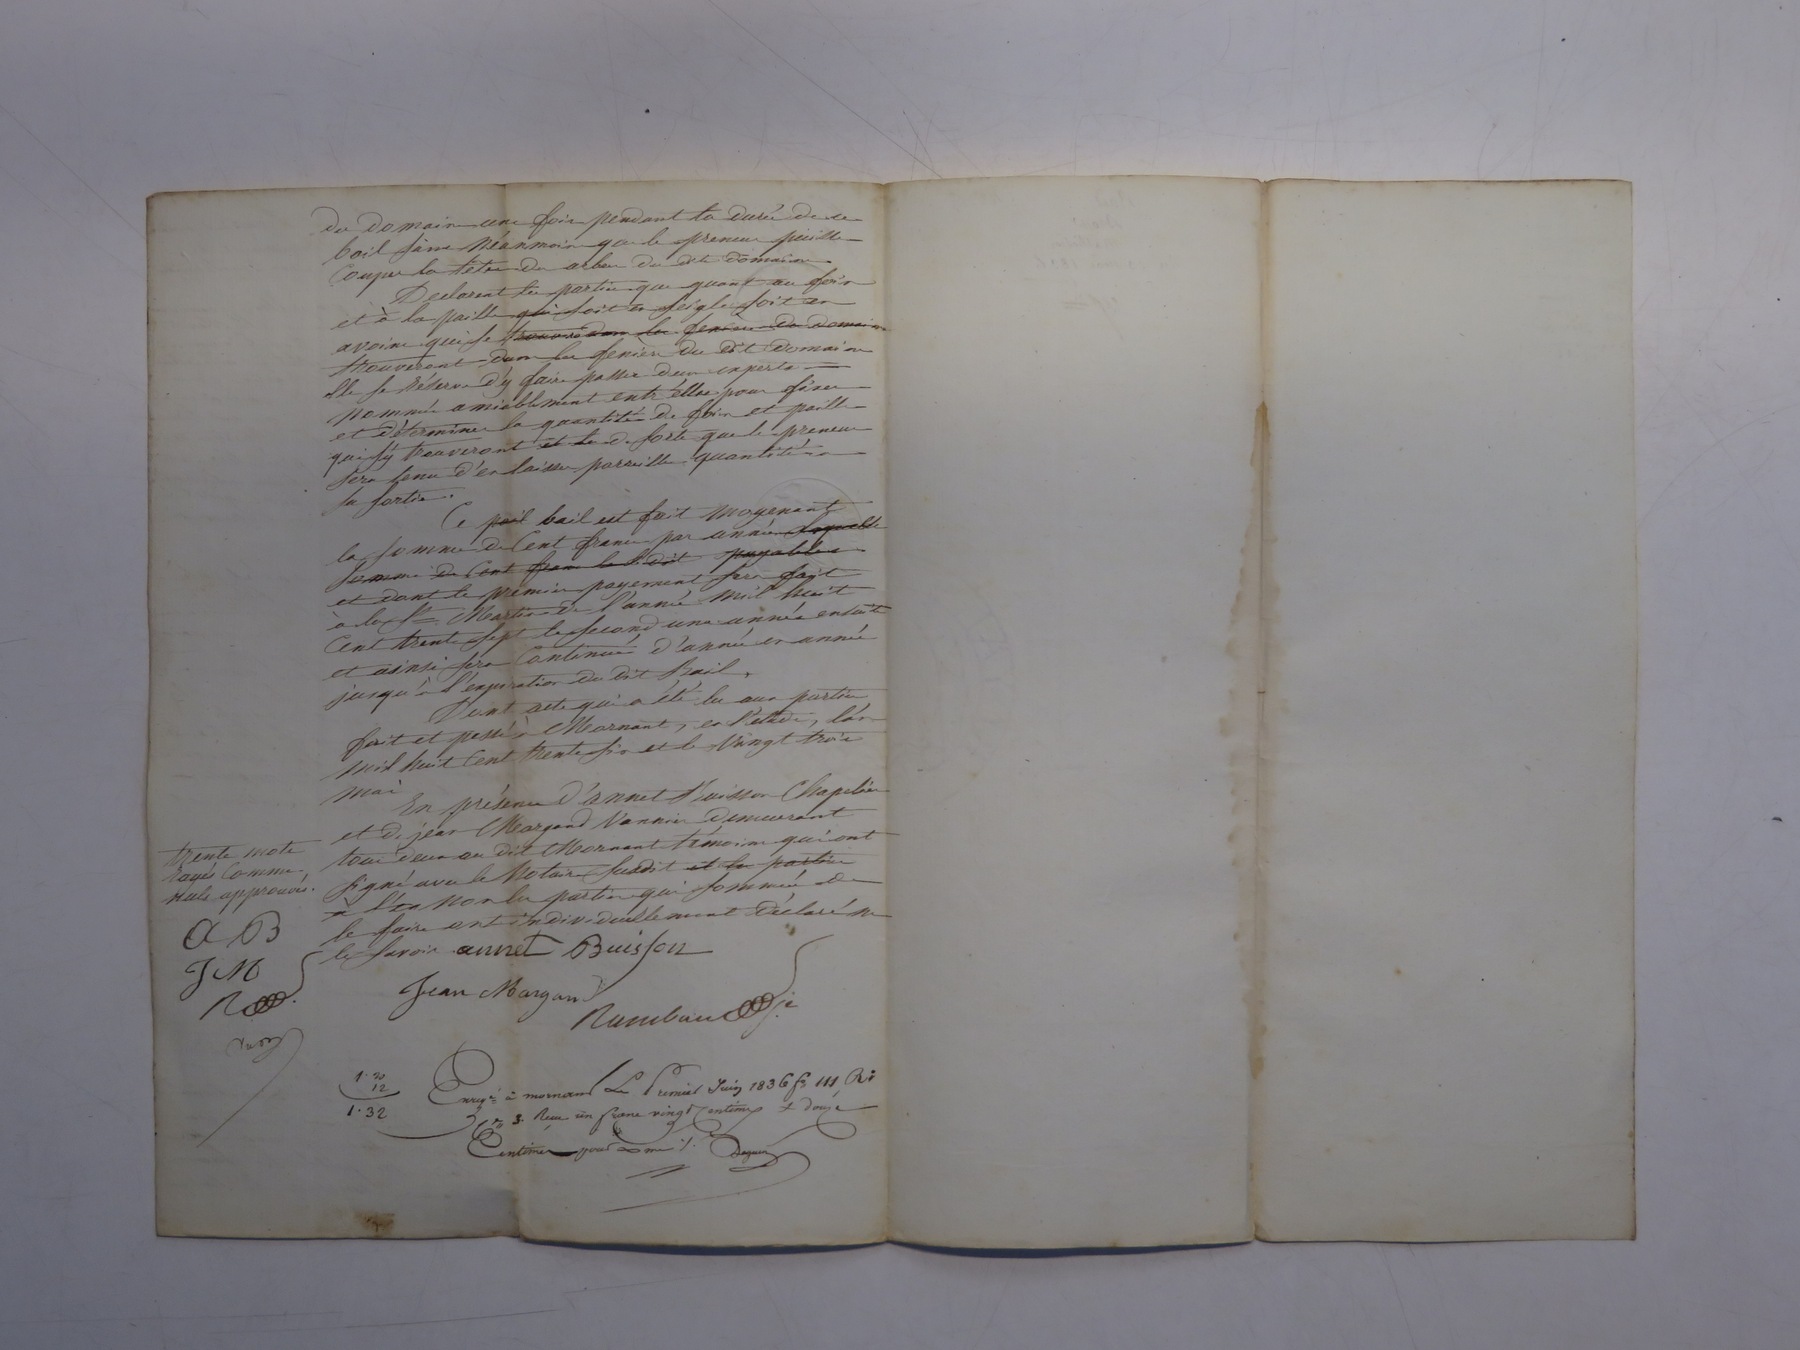 du domain une fois pendant la durée de ce
bail sans néanmoin que le preneur puisse
Couper la tête du arbre du dit domain
Declarent les partie que quant au foin
et à la paille qui soit en seigle soit en
avoine qui se trouvera dans les feniers du domain
trouveront dans les fenier du dit domain
elle se réserve d'y faire passer deux experts
nommés amiablement entr'elles pour fixer
et déterminer la quantité de foin et paille
qui s'y trouveront et le de sorte que le preneur
sera tenu d'en laisser pareille quantité à
sa sortie.
Ce pail bail est fait moyenant
la somme de Cent franc par année laquelle
somme de Cent franc le dit payable
et dont le premier payement sera fait
à la St Martin de l'année mil huit
Cent trente sept le second une année ensuite
et ainsi sera Continué d'année en année
jusqu'à l'expiration du dit bail.
Dont acte qui a été lu aux partie
fait et passé à Mornant, en l'étude, l'an
mil huit Cent trente six et le vingt trois
mai
En présence d'annet Buisson Chapelier
et de jean Margand Vannier demeurant
tous deux au dit Mornant témoins qui ont
signé avec le Notaire susdit et les partie
non les partie qui sommée de
le faire ont individuellement déclaré ne
le savoir annet Buisson
Jean Margand
Rambau
trente mots
rayés Comme
nuls approuvés.
A B
J M
R
1.20
12
1.32
Enregé à mornant Le Premier Juin 1836 fo 111 Ro
Co 3. Reçu un franc vingt Centimes & douze
Centimes pour dme /.